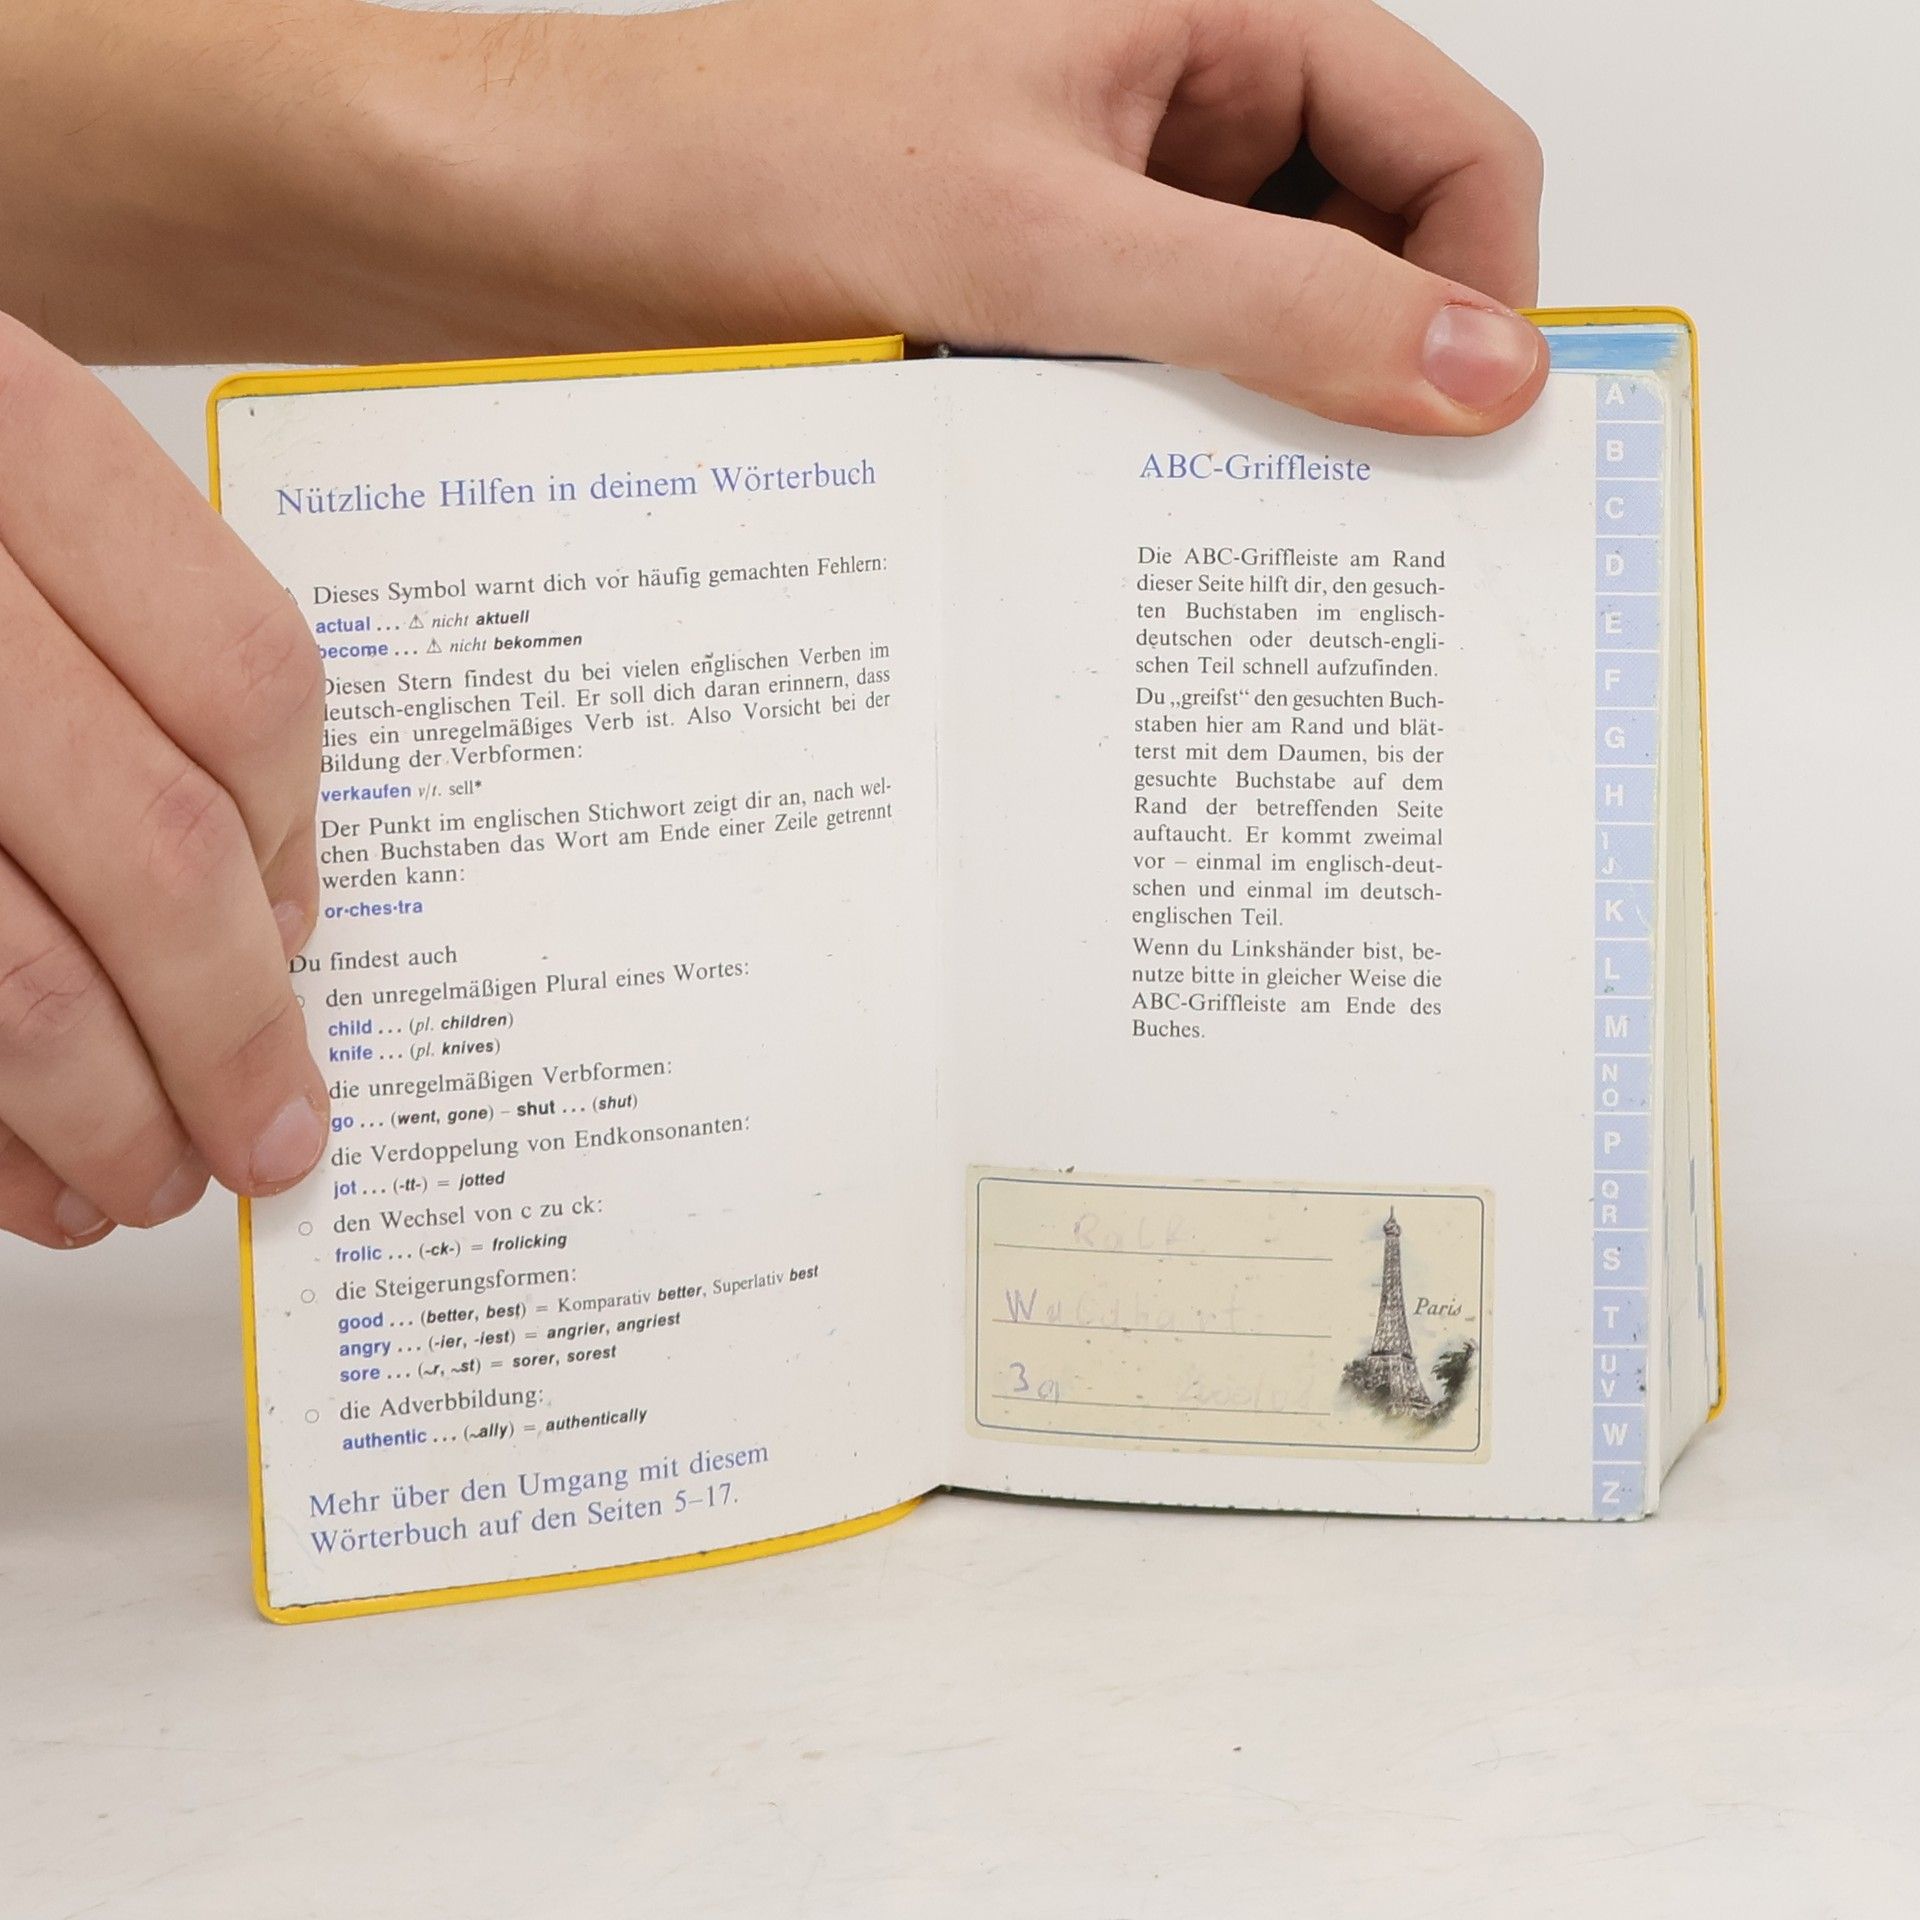 Nützliche Hilfen in deinem Wörterbuch
Dieses Symbol warnt dich vor häufig gemachten Fehlern:
actual ... ⚠ nicht aktuell
become ... ⚠ nicht bekommen
Diesen Stern findest du bei vielen englischen Verben im
deutsch-englischen Teil. Er soll dich daran erinnern, dass
dies ein unregelmäßiges Verb ist. Also Vorsicht bei der
Bildung der Verbformen:
verkaufen v/t. sell*
Der Punkt im englischen Stichwort zeigt dir an, nach wel-
chen Buchstaben das Wort am Ende einer Zeile getrennt
werden kann:
or·ches·tra
Du findest auch
○ den unregelmäßigen Plural eines Wortes:
child ... (pl. children)
knife ... (pl. knives)
die unregelmäßigen Verbformen:
go ... (went, gone) – shut ... (shut)
die Verdoppelung von Endkonsonanten:
jot ... (-tt-) = jotted
○ den Wechsel von c zu ck:
frolic ... (-ck-) = frolicking
○ die Steigerungsformen:
good ... (better, best) = Komparativ better, Superlativ best
angry ... (-ier, -iest) = angrier, angriest
sore ... (~r, ~st) = sorer, sorest
○ die Adverbbildung:
authentic ... (~ally) = authentically
Mehr über den Umgang mit diesem
Wörterbuch auf den Seiten 5–17.
ABC-Griffleiste
Die ABC-Griffleiste am Rand
dieser Seite hilft dir, den gesuch-
ten Buchstaben im englisch-
deutschen oder deutsch-engli-
schen Teil schnell aufzufinden.
Du „greifst“ den gesuchten Buch-
staben hier am Rand und blät-
terst mit dem Daumen, bis der
gesuchte Buchstabe auf dem
Rand der betreffenden Seite
auftaucht. Er kommt zweimal
vor – einmal im englisch-deut-
schen und einmal im deutsch-
englischen Teil.
Wenn du Linkshänder bist, be-
nutze bitte in gleicher Weise die
ABC-Griffleiste am Ende des
Buches.
3a
Paris
A
B
C
D
E
F
G
H
I
J
K
L
M
N
O
P
Q
R
S
T
U
V
W
Z